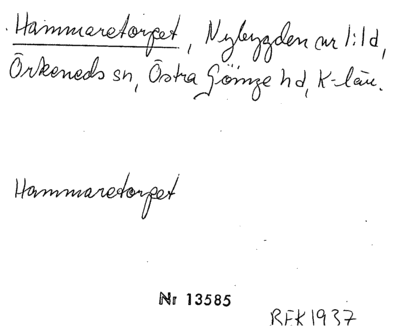 Hammaretorpet, Nybygden nr 1:1 d,
Örkeneds sn, Östra Göinge hd, K-län.
Hammaretorpet
Nr 13585
RFK 1937